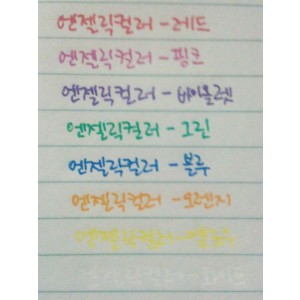 엔젤릭컬러 - 레드
엔젤릭컬러 - 핑크
엔젤릭컬러 - 바이올렛
엔젤릭컬러 - 그린
엔젤릭컬러 - 블루
엔젤릭컬러 - 오렌지
엔젤릭컬러 - 옐로우
엔젤릭컬러 - 화이트